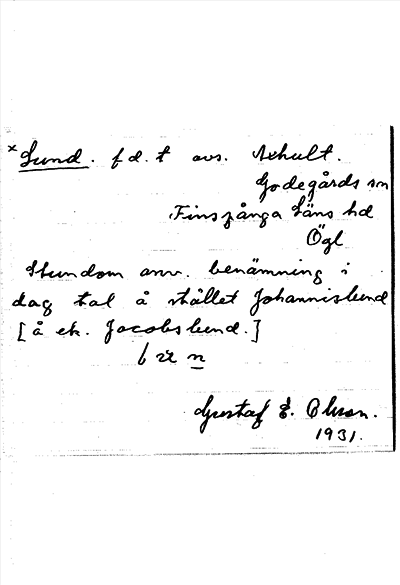 × Lund. f d. t avs. Axhult.
Godegårds sn
Finspånga Läns hd
Ögl
Stundom anv. benämning i
dag tal å stället Johannislund
[å ek. Jacobslund.]
b 22 n
Gustaf E. Olsson.
1931.